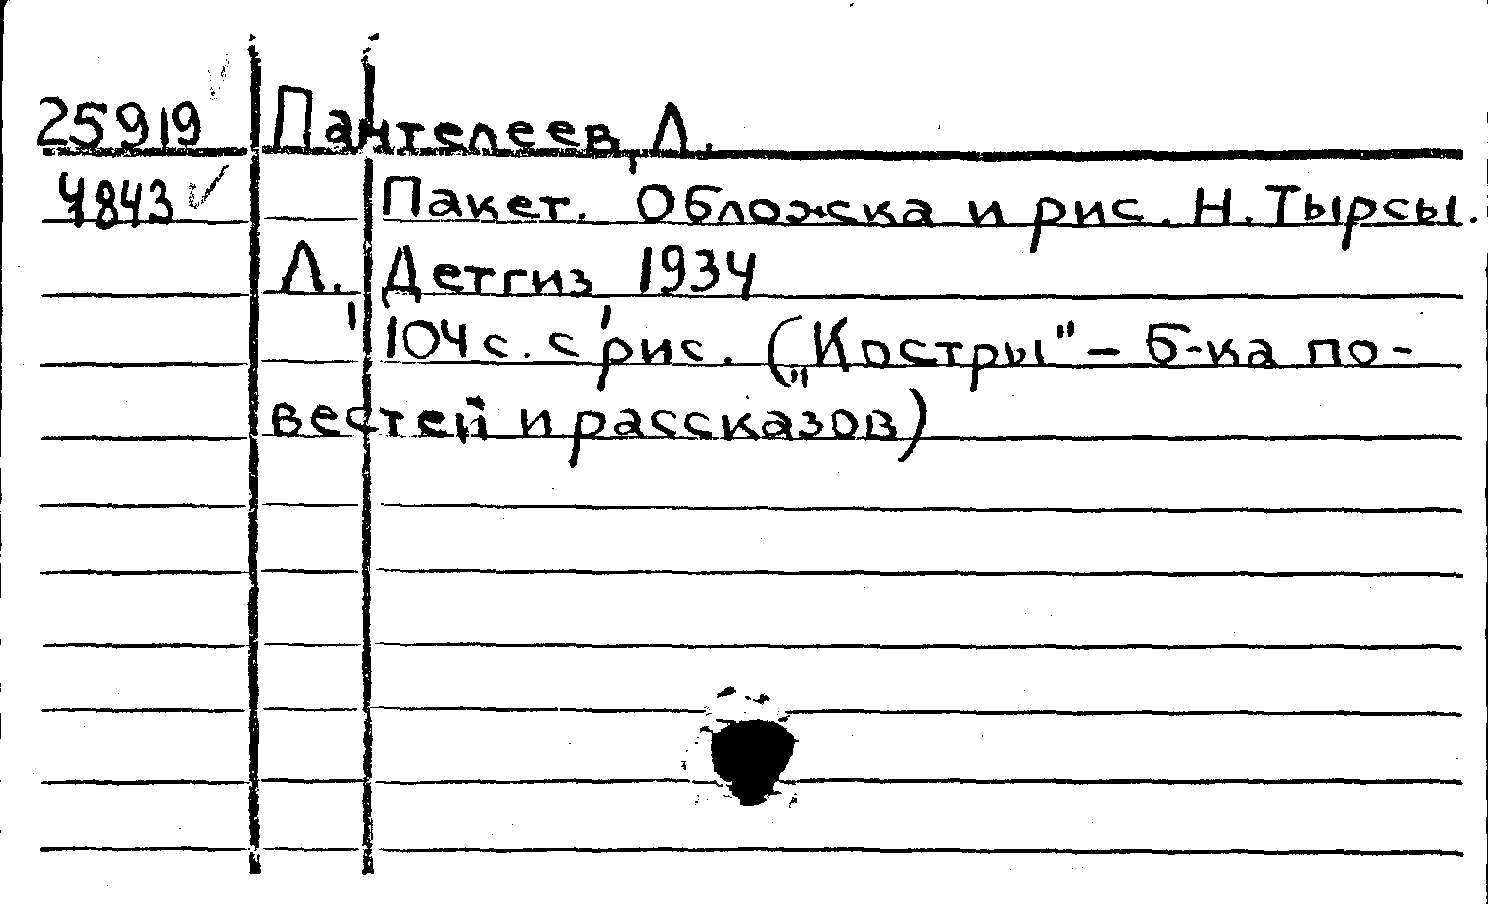 25919 Пантелеев, Л.
4843 Пакет. Обложска и рис. Н. Тырсы.
Л., Детгиз, 1934
104 с. с рис. („Костры" - б-ка по-
вестей и рассказов)